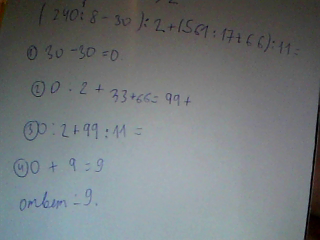 (240:8-30):2+(561:17+66):11=
① 30-30=0
② 0·2+33+66=99+
③ 0:2+99:11=
④ 0+9=9
ответ=9.